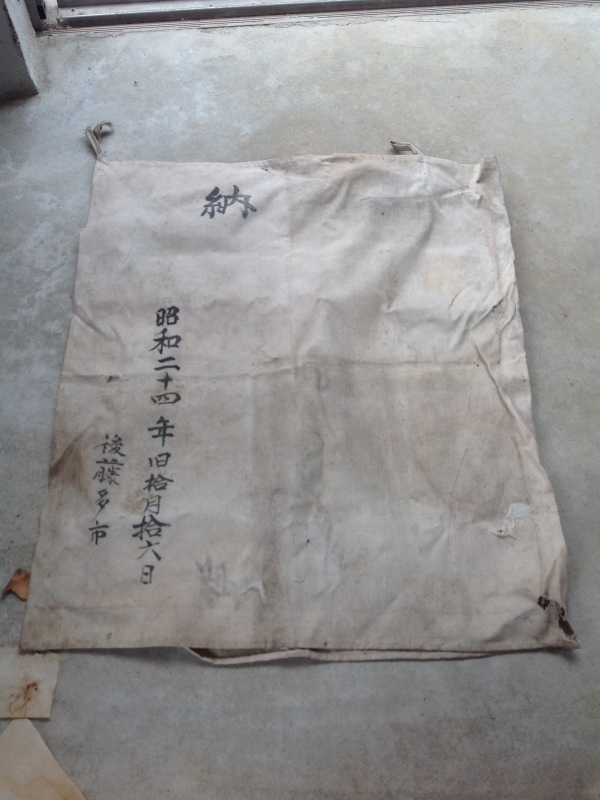 納
昭和二十四年旧拾月拾六日
後藤多市